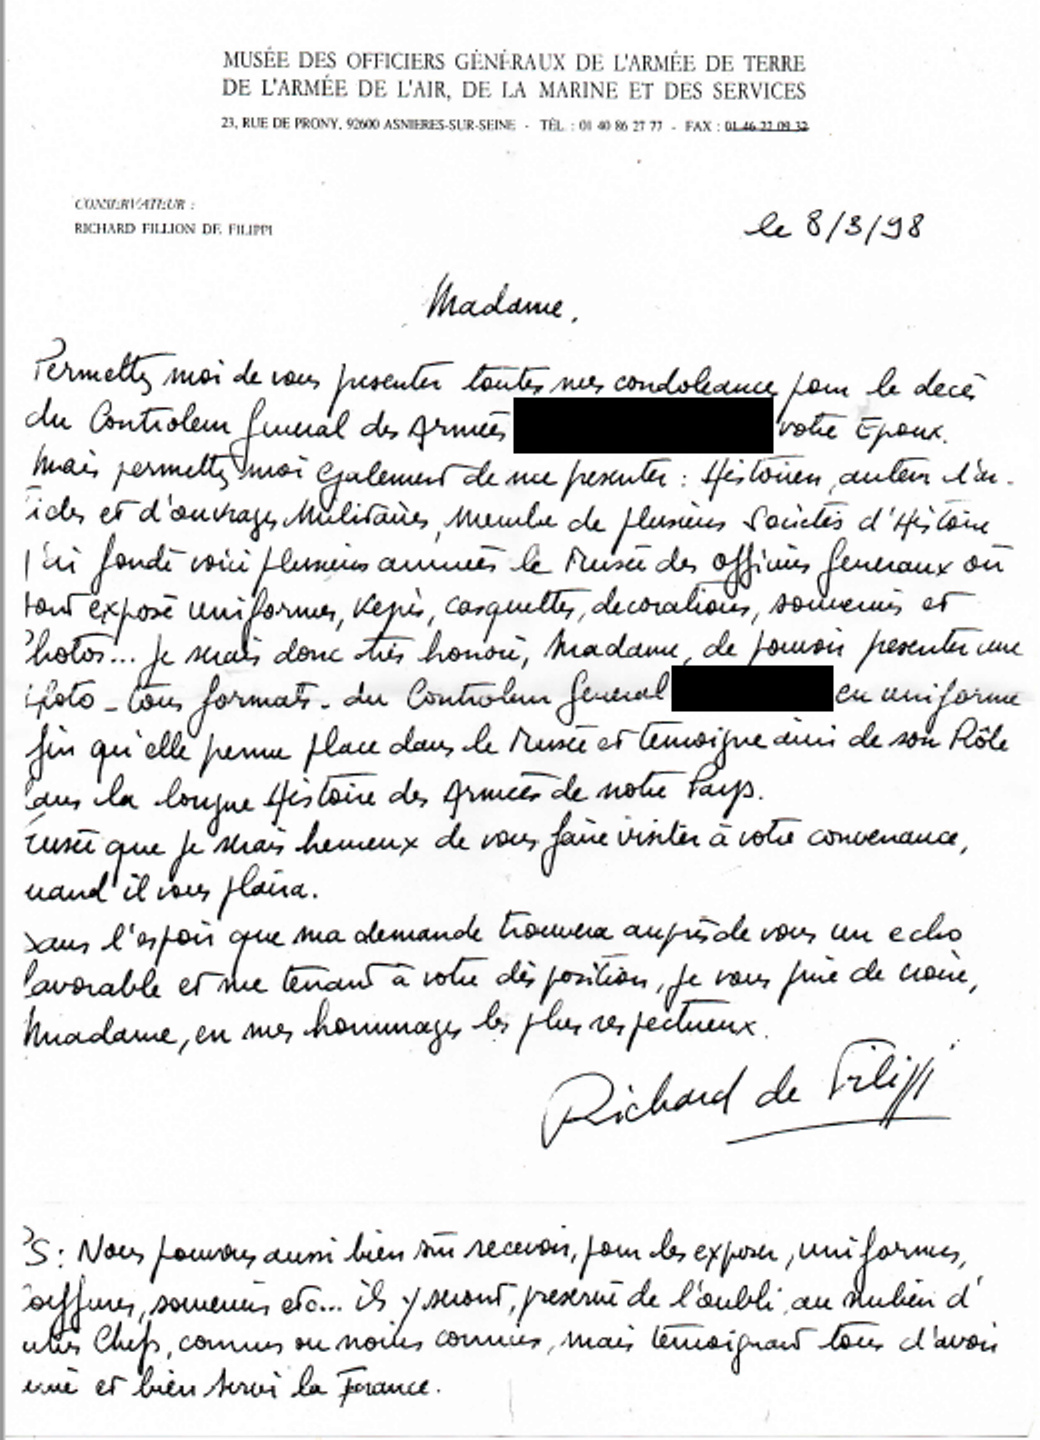 MUSÉE DES OFFICIERS GÉNÉRAUX DE L'ARMÉE DE TERRE
DE L'ARMÉE DE L'AIR, DE LA MARINE ET DES SERVICES
23, RUE DE PRONY, 92600 ASNIERES-SUR-SEINE - TÉL : 01 40 86 27 77 - FAX : 01 46 22 09 32
CONSERVATEUR :
RICHARD FILLION DE FILIPPI
le 8/3/98
Madame,
Permettez moi de vous presenter toutes mes condoleances pour le decès
du Controleur General des Armées votre Epoux.
Mais permettez moi egalement de me presenter : Historien, auteur d'ar-
icles et d'ouvrages Militaires, Membre de plusieurs Sociétés d'Histoire
j'ai fondé voici plusieurs années le Musée des officiers Generaux où
sont exposé uniformes, Kepis, casquettes, decorations, souvenirs et
Photos... Je serais donc très honoré, Madame, de pouvoir presenter une
photo _ tous formats - du Controleur General en uniforme
fin qu'elle prenne place dans le Musée et temoigne ainsi de son Rôle
ans la longue Histoire des Armées de notre Pays.
usée que je serais heureux de vous faire visiter à votre convenance,
uand il vous plaira.
Dans l'espoir que ma demande trouvera auprès de vous un echo
favorable et me tenant à votre disposition, je vous prie de croire,
Madame, en mes hommages les plus respectueux.
Richard de Filippi
PS : Nous pouvons aussi bien sûr recevoir, pour les exposer, uniformes,
coiffures, souvenirs etc... ils y seront, preservé de l'oubli au milieu d'
utres Chefs, connus ou moins connus, mais temoignant tous d'avoir
et bien servi la France.